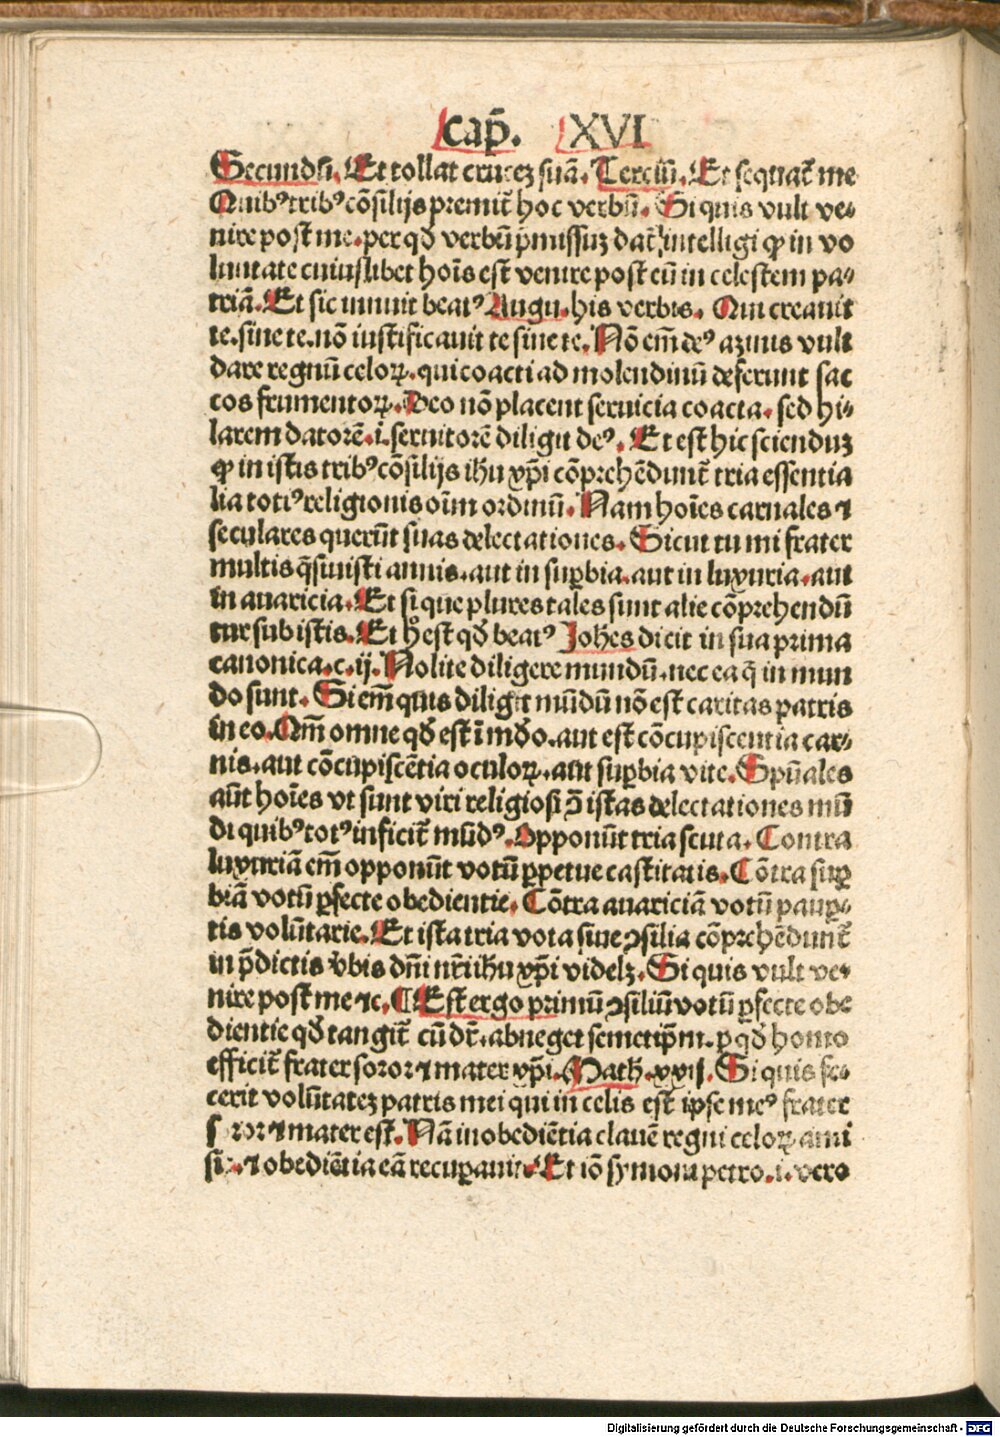 Cap̃. XVI
Secundũ. Et tollat crucez suã. Terciũ. Et sequat̃ me
Quibꝰ tribꝰ cõsilijs premit̃ hoc verbũ. Si quis vult ve⸗
nire post me. per qđ verbũ p̃missuz dat̃ intelligi ꝙ in vo
luntate cuiuslibet hoĩs est venire post eũ in celestem pa⸗
triã. Et sic innuit beatꝰ Augu. his verbis. Qui creauit
te. sine te. nõ iustificauit te sine te. Nõ em̃ deꝰ azinus vult
dare regnũ celoꝝ. qui coacti ad molendinũ deferunt sac
cos frumentoꝝ. Deo nõ placent seruicia coacta. sed hi⸗
larem datorẽ. i. seruitorẽ diligit deꝰ. Et est hic scienduz
ꝙ in istis tribꝰ cõsilijs ihu xp̃i cõprehẽdunt̃ tria essentia
lia totiꝰ religionis oĩm ordinũ. Nam hoĩes carnales ⁊
seculares querũt suas delectationes. Sicut tu mi frater
multis q̃siuisti annis. aut in suꝑbia. aut in luxuria. aut
in auaricia. Et si que plures tales sunt alie cõprehendũ
tur sub istis. Et hͦ est qđ beatꝰ Joħes dicit in sua prima
canonica. c. ij. Nolite diligere mundũ. nec ea q̃ in mun
do sunt. Si em̃ quis diligit mũdũ nõ est caritas patris
in eo. Qm̃ omne qđ est ĩ mđo. aut est cõcupiscentia car⸗
nis. aut cõcupiscẽtia oculoꝝ. aut suꝑbia vite. Spũales
aũt hoĩes vt sunt viri religiosi ꝯ̃ istas delectationes mũ
di quibꝰ totꝰ inficit̃ mũdꝰ. Opponũt tria scuta. Contra
luxuriã em̃ opponũt votũ ꝑpetue castitatis. Cõtra suꝑ
biã votũ ꝑfecte obedientie. Cõtra auariciã votũ pauꝑ⸗
tis volũtarie. Et ista tria vota siue ꝯsilia cõprehẽdunt̃
in p̃dictis v̾bis dñi nr̃i ihu xp̃i videlꝫ. Si quis vult ve⸗
nire post me ⁊c. ¶ Est ergo primũ ꝯsiliũ votũ ꝑfecte obe
dientie qđ tangit̃ cũ dr̃. abneget semetip̃m. ꝑ qđ homo
efficit̃ frater soror ⁊ mater xp̃i. Math. xxij. Si quis fe⸗
cerit volũtatez patris mei qui in celis est ipse meꝰ frater
soror ⁊ mater est. Nã inobediẽtia clauẽ regni celoꝝ ami
sit. ⁊ obediẽtia eã recuꝑauit. Et iõ symoni petro. i. vero
Digitalisierung gefördert durch die Deutsche Forschungsgemeinschaft - DFG